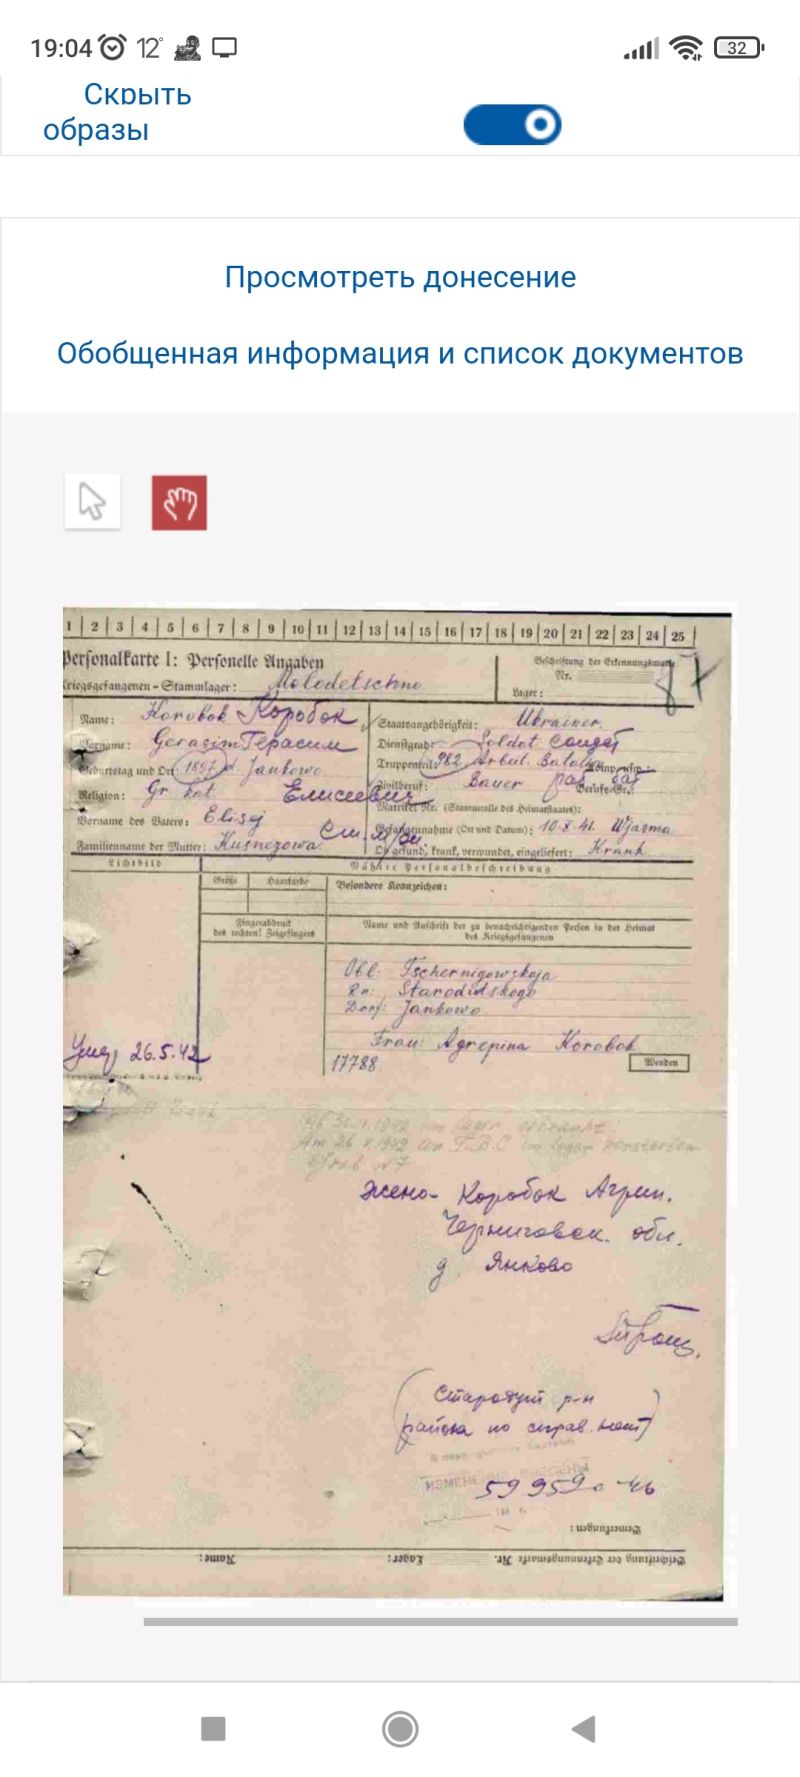 19:04 12° 32
Скрыть
образы
Просмотреть донесение
Обобщенная информация и список документов
1 2 3 4 5 6 7 8 9 10 11 12 13 14 15 16 17 18 19 20 21 22 23 24 25
Personalkarte I: Personelle Angaben
Kriegsgefangenen-Stammlager: Molodetschno
Beschriftung der Erkennungsmarke
Nr.
Lager:
Name: Korobok Коробок
Vorname: Gerasim Герасим
Geburtstag und Ort: 1897 d. Jankowo
Religion: Gr. kat. Елисеевич
Vorname des Vaters: Elisej
Familienname der Mutter: Kusnezowa
Staatsangehörigkeit: Ukrainer
Dienstgrad: Soldat солдат
Truppenteil: 982 Arbeit. Batalj. Komp. usw.:
Zivilberuf: Bauer раб. бат Berufs-Gr.:
Matrikel Nr. (Stammrolle des Heimatstaates):
Gefangennahme (Ort und Datum): 10.X.41. Wjasma
Ob gesund, krank, verwundet, eingeliefert: Krank
Lichtbild
Nähere Personalbeschreibung
Größe Haarfarbe Besondere Kennzeichen:
Fingerabdruck
des rechten! Zeigefingers
Name und Anschrift der zu benachrichtigenden Person in der Heimat
des Kriegsgefangenen
Obl: Tschernigowskaja
Rn: Starodubskogo
Dorf: Jankowo
Frau: Agrepina Korobok
17788
Wenden
26.5.42
Am 26 V 1942 an T.B.C im Lager verstorben
Grab N7
жена- Коробок Агрип.
Черниговск. обл.
д Янково
(Стародуб р-н
района по справ. нет)
59959с-46
Bemerkungen:
Beschriftung der Erkennungsmarke Nr. Lager: Name: